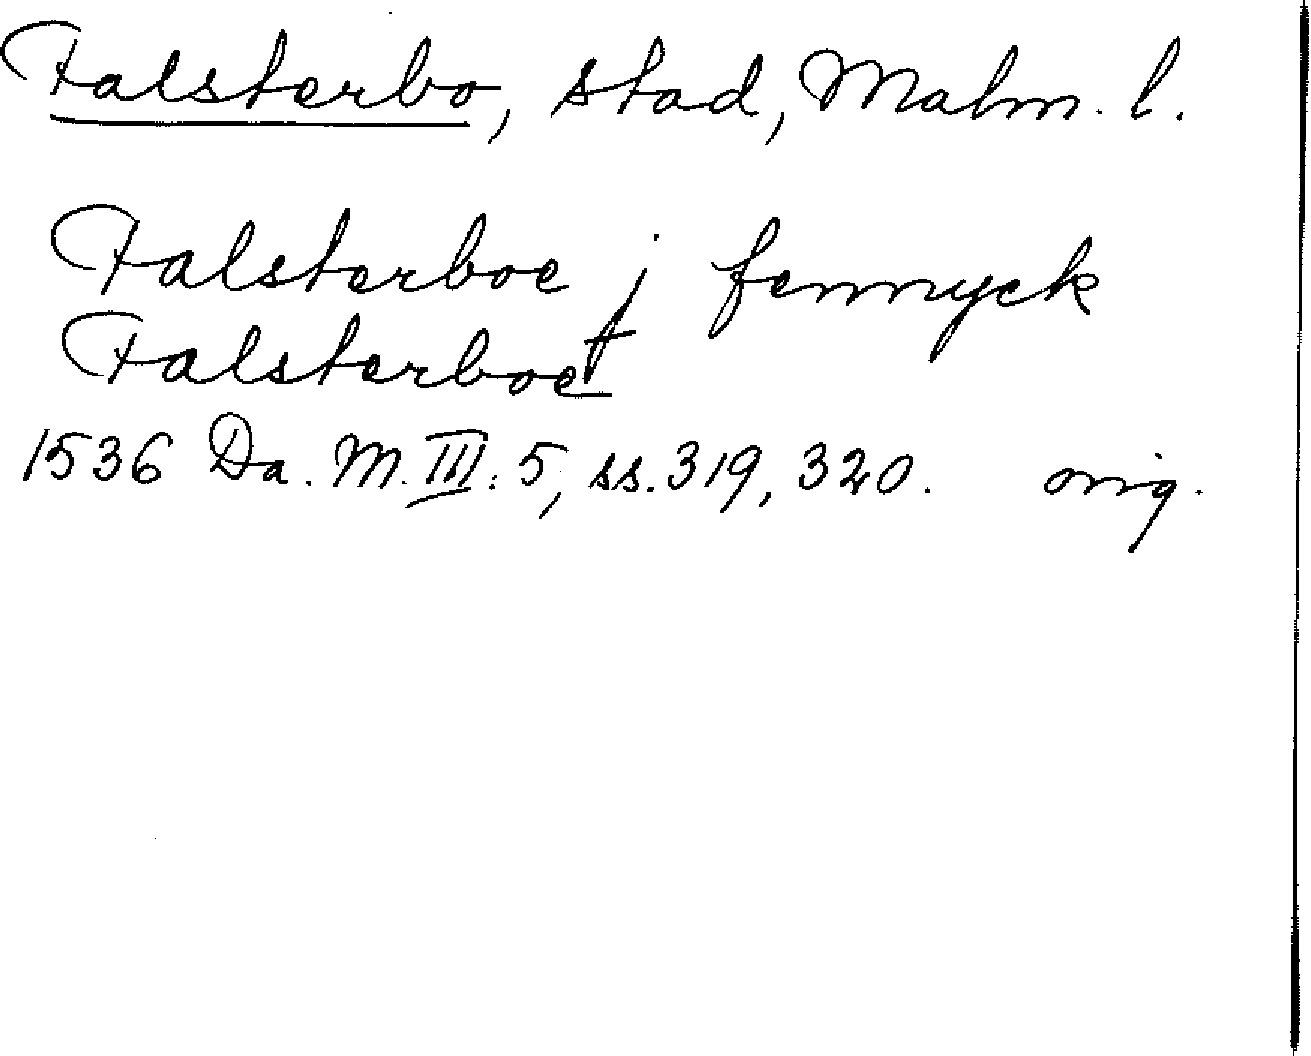 Falsterbo, stad, Malm. l.
Falsterboe j fennyck
Falsterboe
1536 Da. M. III: 5, ss. 319, 320. orig.